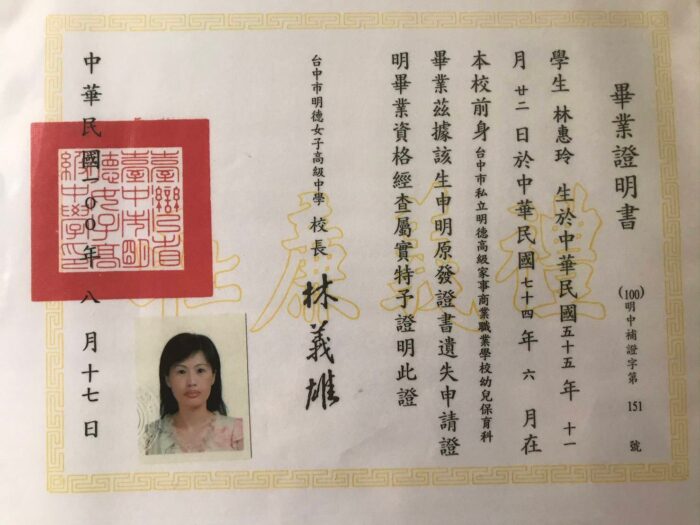 畢業證明書
(100)明中補證字第 151 號
學生 林惠玲 生於中華民國五十五年 十一
月 廿二 日於中華民國七十四年 六 月在
本校前身台中市私立明德高級家事商業職業學校幼兒保育科
畢業茲據該生申明原發證書遺失申請證
明畢業資格經查屬實特予證明此證
台中市明德女子高級中學 校長 林義雄
中華民國一00年 八 月 十七 日
臺灣省
臺中市明
德女子高
級中學印
禮義廉恥